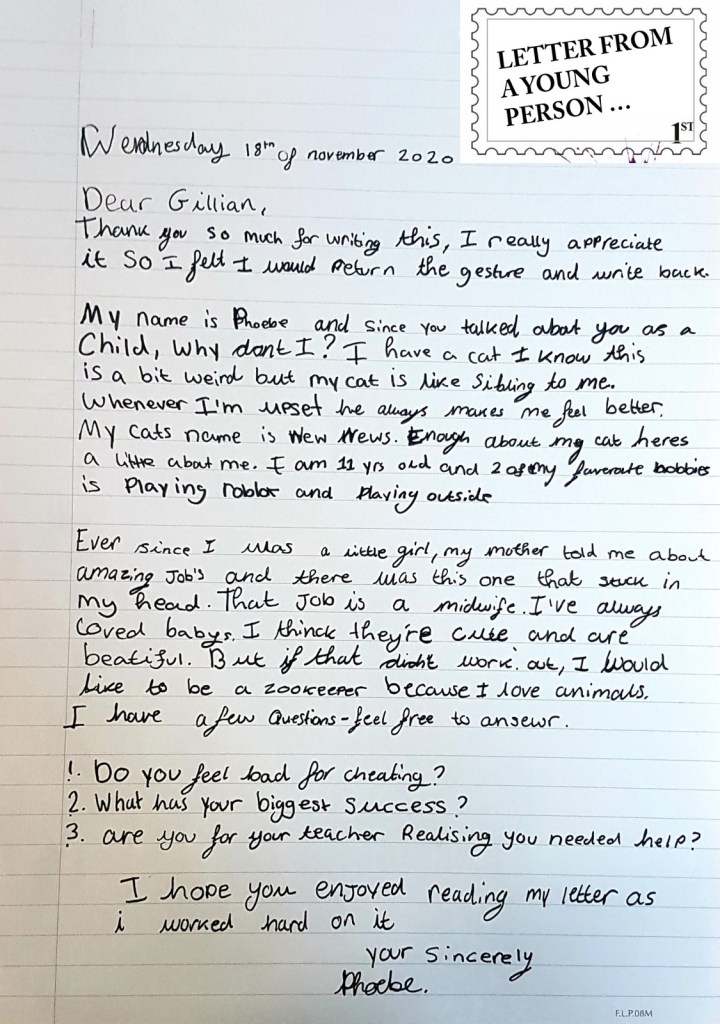 LETTER FROM
A YOUNG
PERSON ...
1ST
Wendnesday 18th of november 2020
Dear Gillian,
Thank you so much for writing this, I really appreciate
it So I felt I would return the gesture and write back.
My name is Phoebe and since you talked about you as a
Child, why dont I? I have a cat I know this
is a bit weird but my cat is like Sibling to me.
Whenever I'm upset he always makes me feel better.
My cats name is Wew Wews. Enough about my cat heres
a little about me. I am 11 yrs old and 2 of my faveroute hobbies
is Playing roblox and Playing outside
Ever since I was a little girl, my mother told me about
amazing Job's and there was this one that stuck in
my head. That Job is a midwife. I've always
loved babys. I thinck they're cute and are
beatiful. But if that didn't work out, I would
like to be a zookeeper because I love animals.
I have a few Questions - feel free to ansewr.
1. Do you feel bad for cheating?
2. What has your biggest success?
3. are you for your teacher Realising you needed help?
I hope you enjoyed reading my letter as
i worked hard on it
your sincerely
Phoebe.
F.L.P.08M